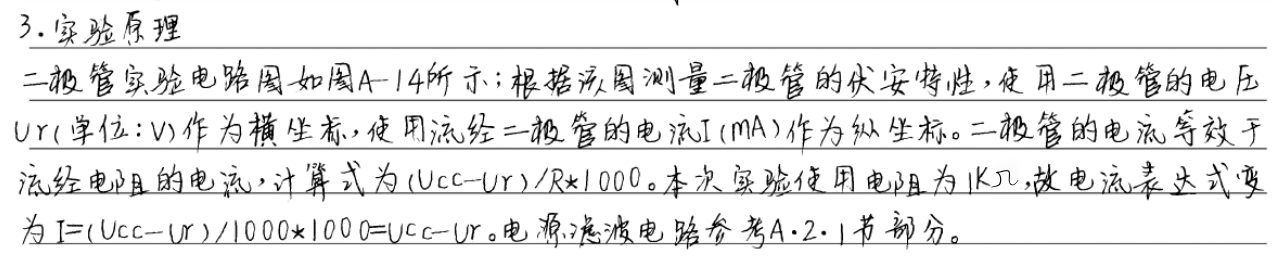 3.实验原理
二极管实验电路图如图A-14所示;根据该图测量二极管的伏安特性,使用二极管的电压
Ur(单位:V)作为横坐标,使用流经二极管的电流I(mA)作为纵坐标。二极管的电流等效于
流经电阻的电流,计算式为(Ucc-Ur)/R*1000。本次实验使用电阻为1KΩ,故电流表达式变
为I=(Ucc-Ur)/1000*1000=Ucc-Ur。电源滤波电路参考A.2.1节部分。